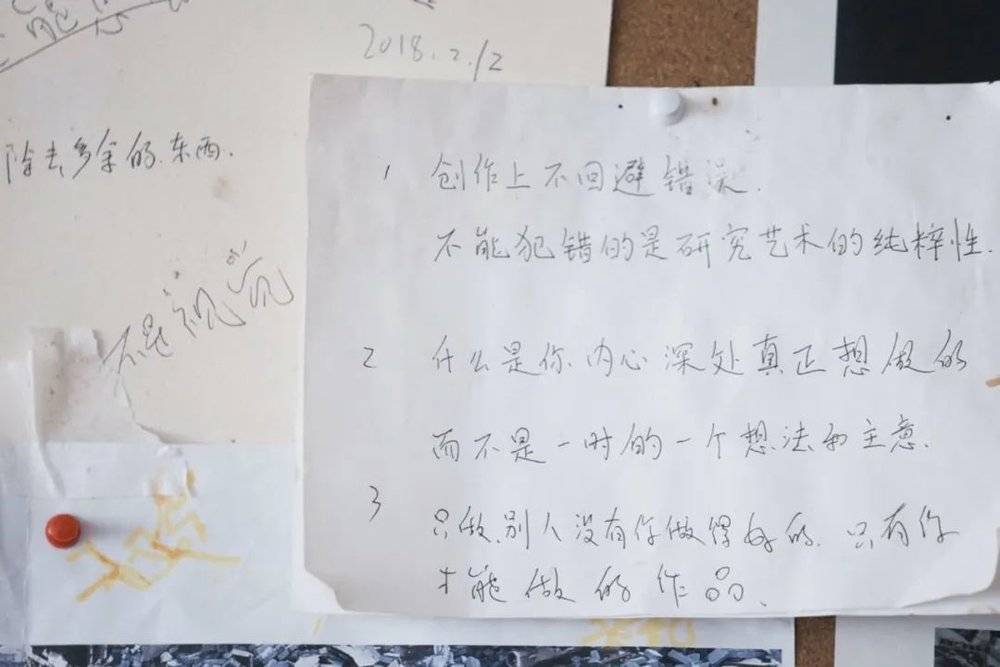 2018.2.12
除去多余的东西.
不是视觉
1 创作上不回避错误.
不能犯错的是研究艺术的纯粹性.
2 什么是你内心深处真正想做的
而不是一时的一个想法和主意.
3 只做别人没有你做得好的.只有你
才能做的作品、